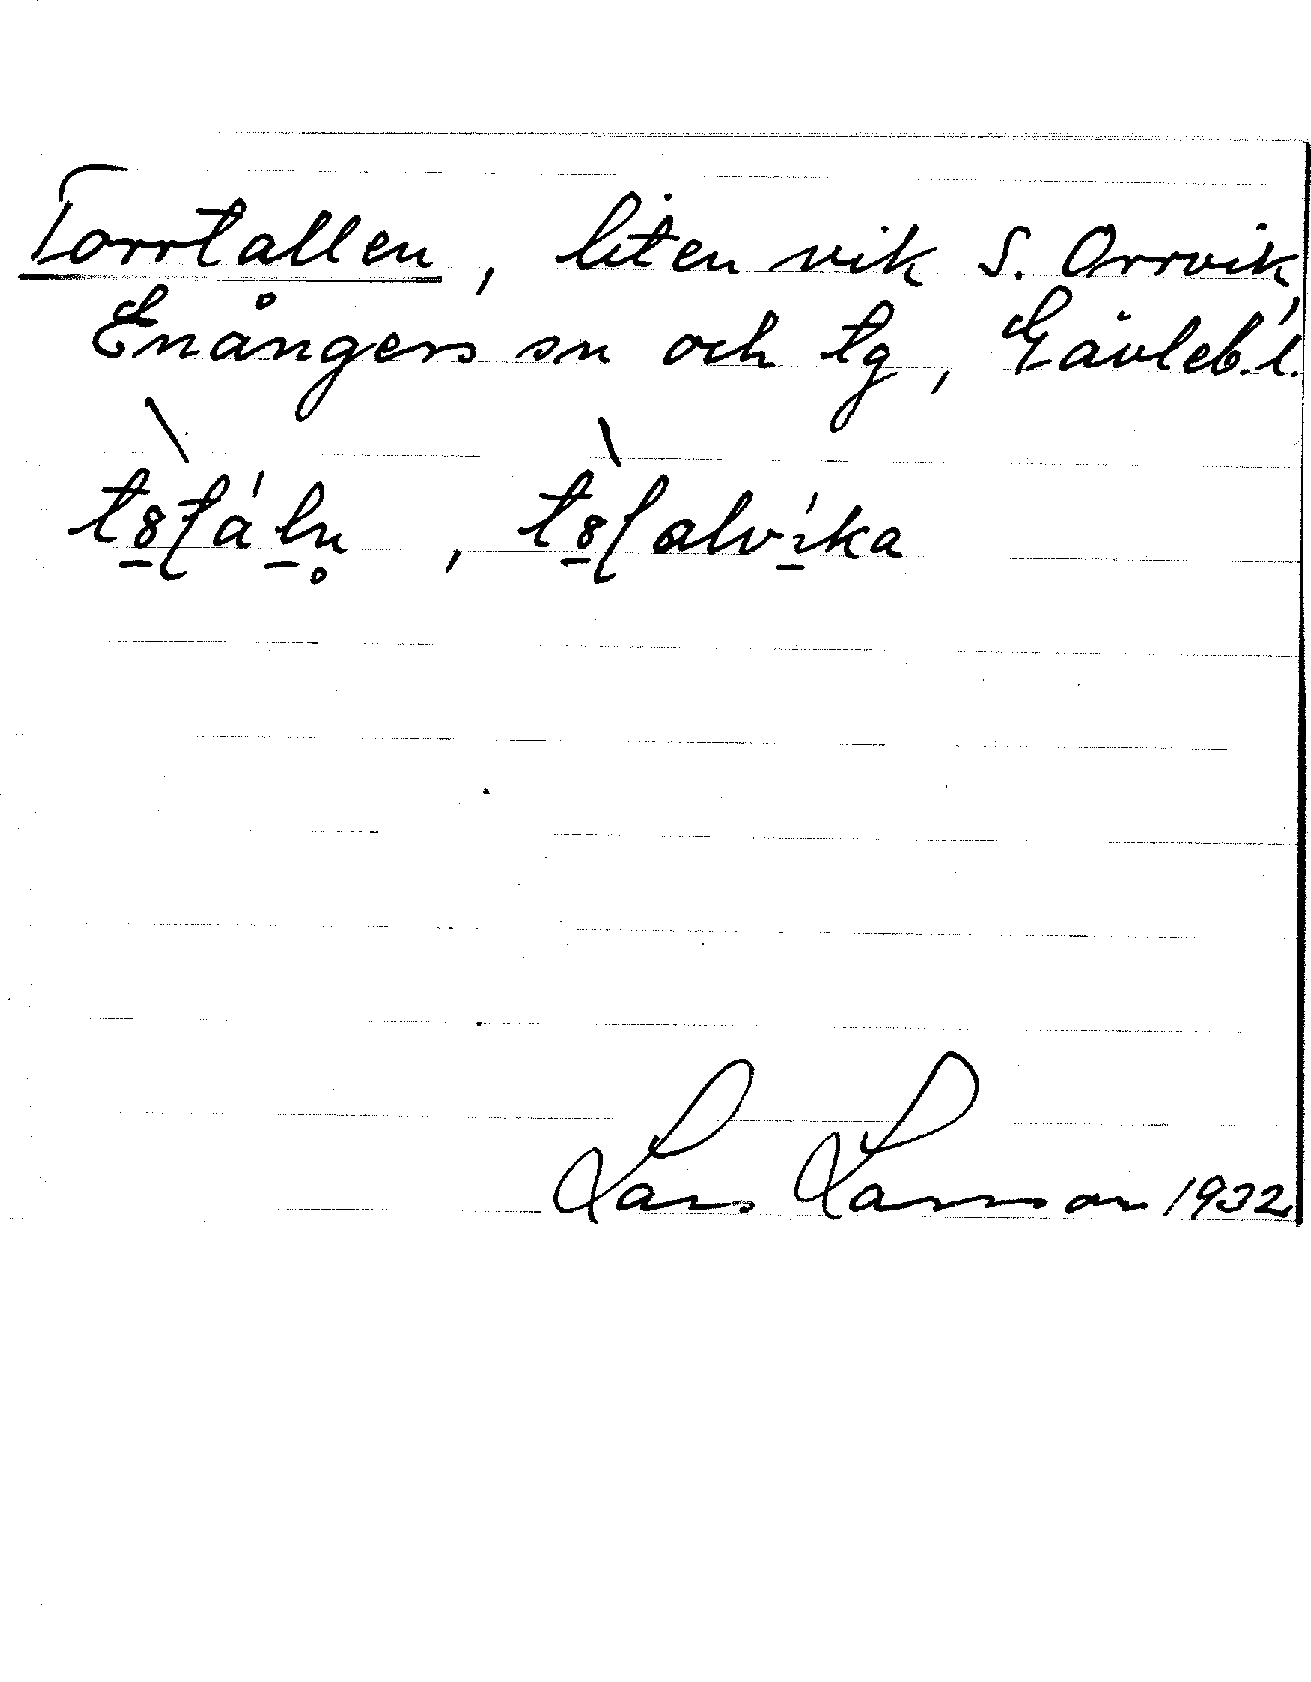 Torrtallen, liten vik S. Orrvik,
Enångers sn och tg, Gävleb. l.
Lars Larsson 1932